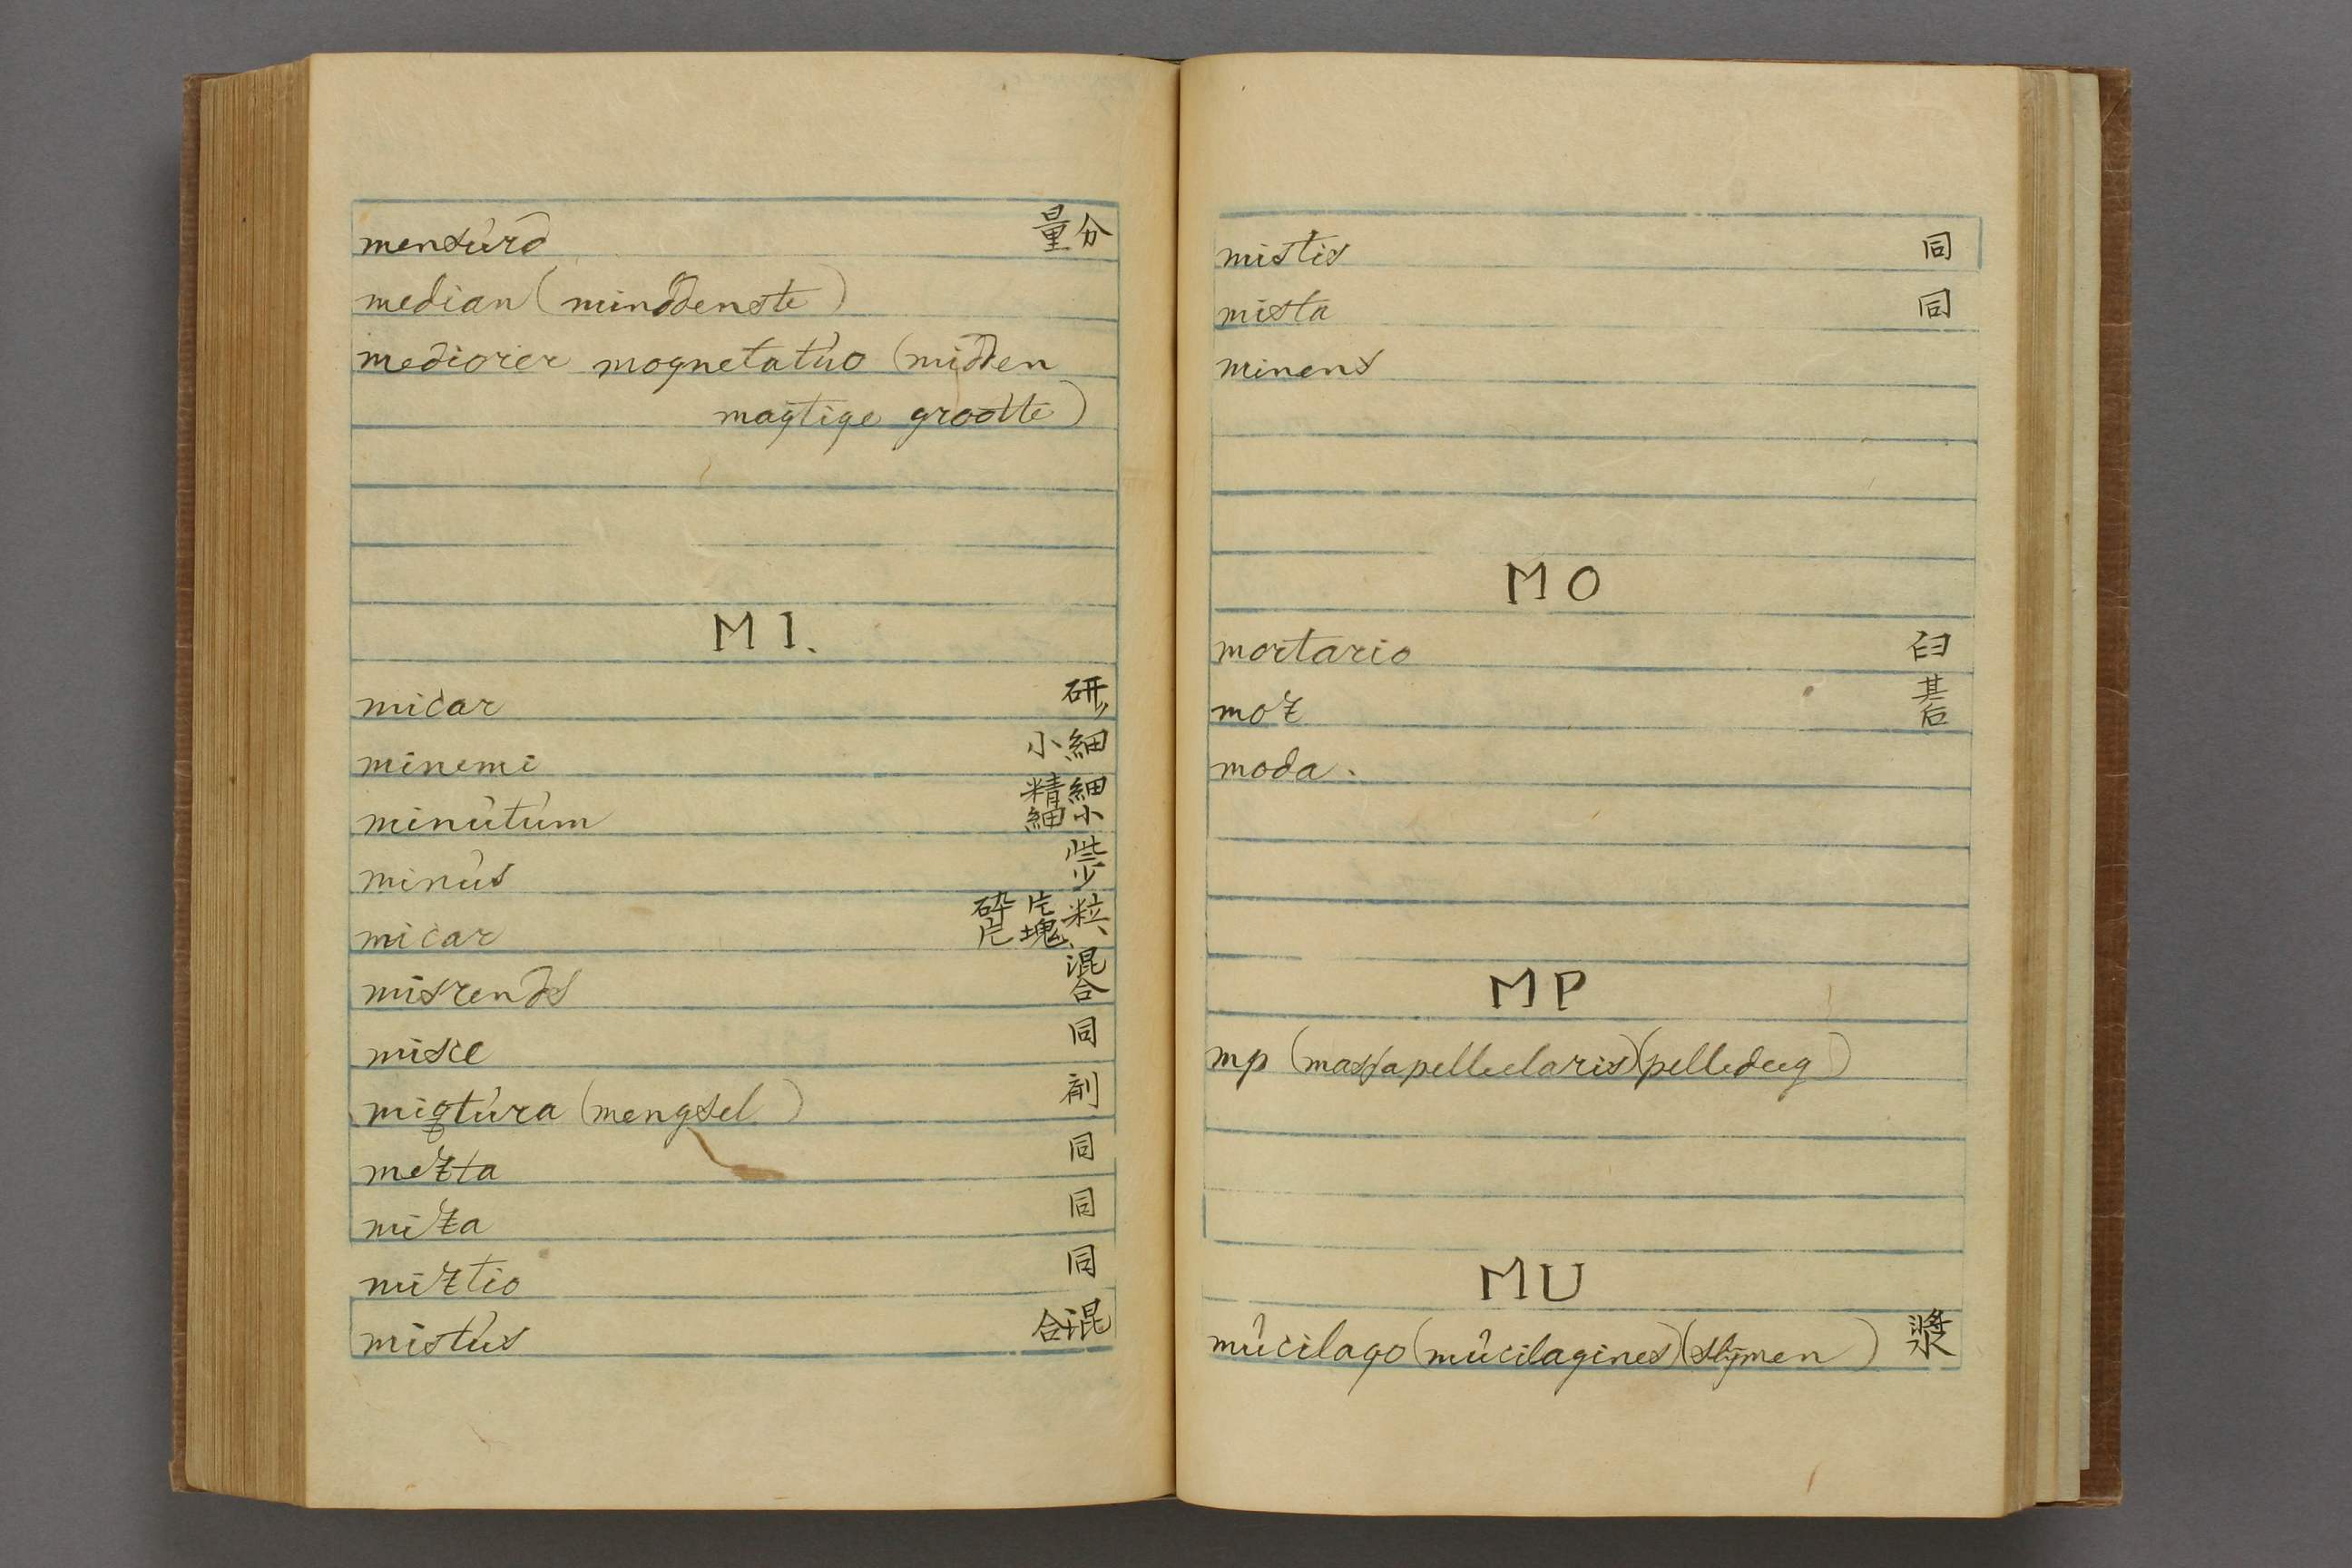 mensúrd 量分
median (minddenste)
mediorer mognetatúo (midden
magtige grootte)
M I.
micar 研
minemi 小細
minútúm 精細 細小
minús 些少
micar 砕片 片塊 粒
misrends 混合
misce 同
mixtúra (mengsel) 剤
mezta 同
mixa 同
mixtio 同
mistús 合混
mistis 同
mista 同
minens
M O
mortario 臼
mox 碁后
moda.
M P
mp (massapelluelaris)(pelledeeg)
M U
múcilago (múcilagines)(slijmen) 漿